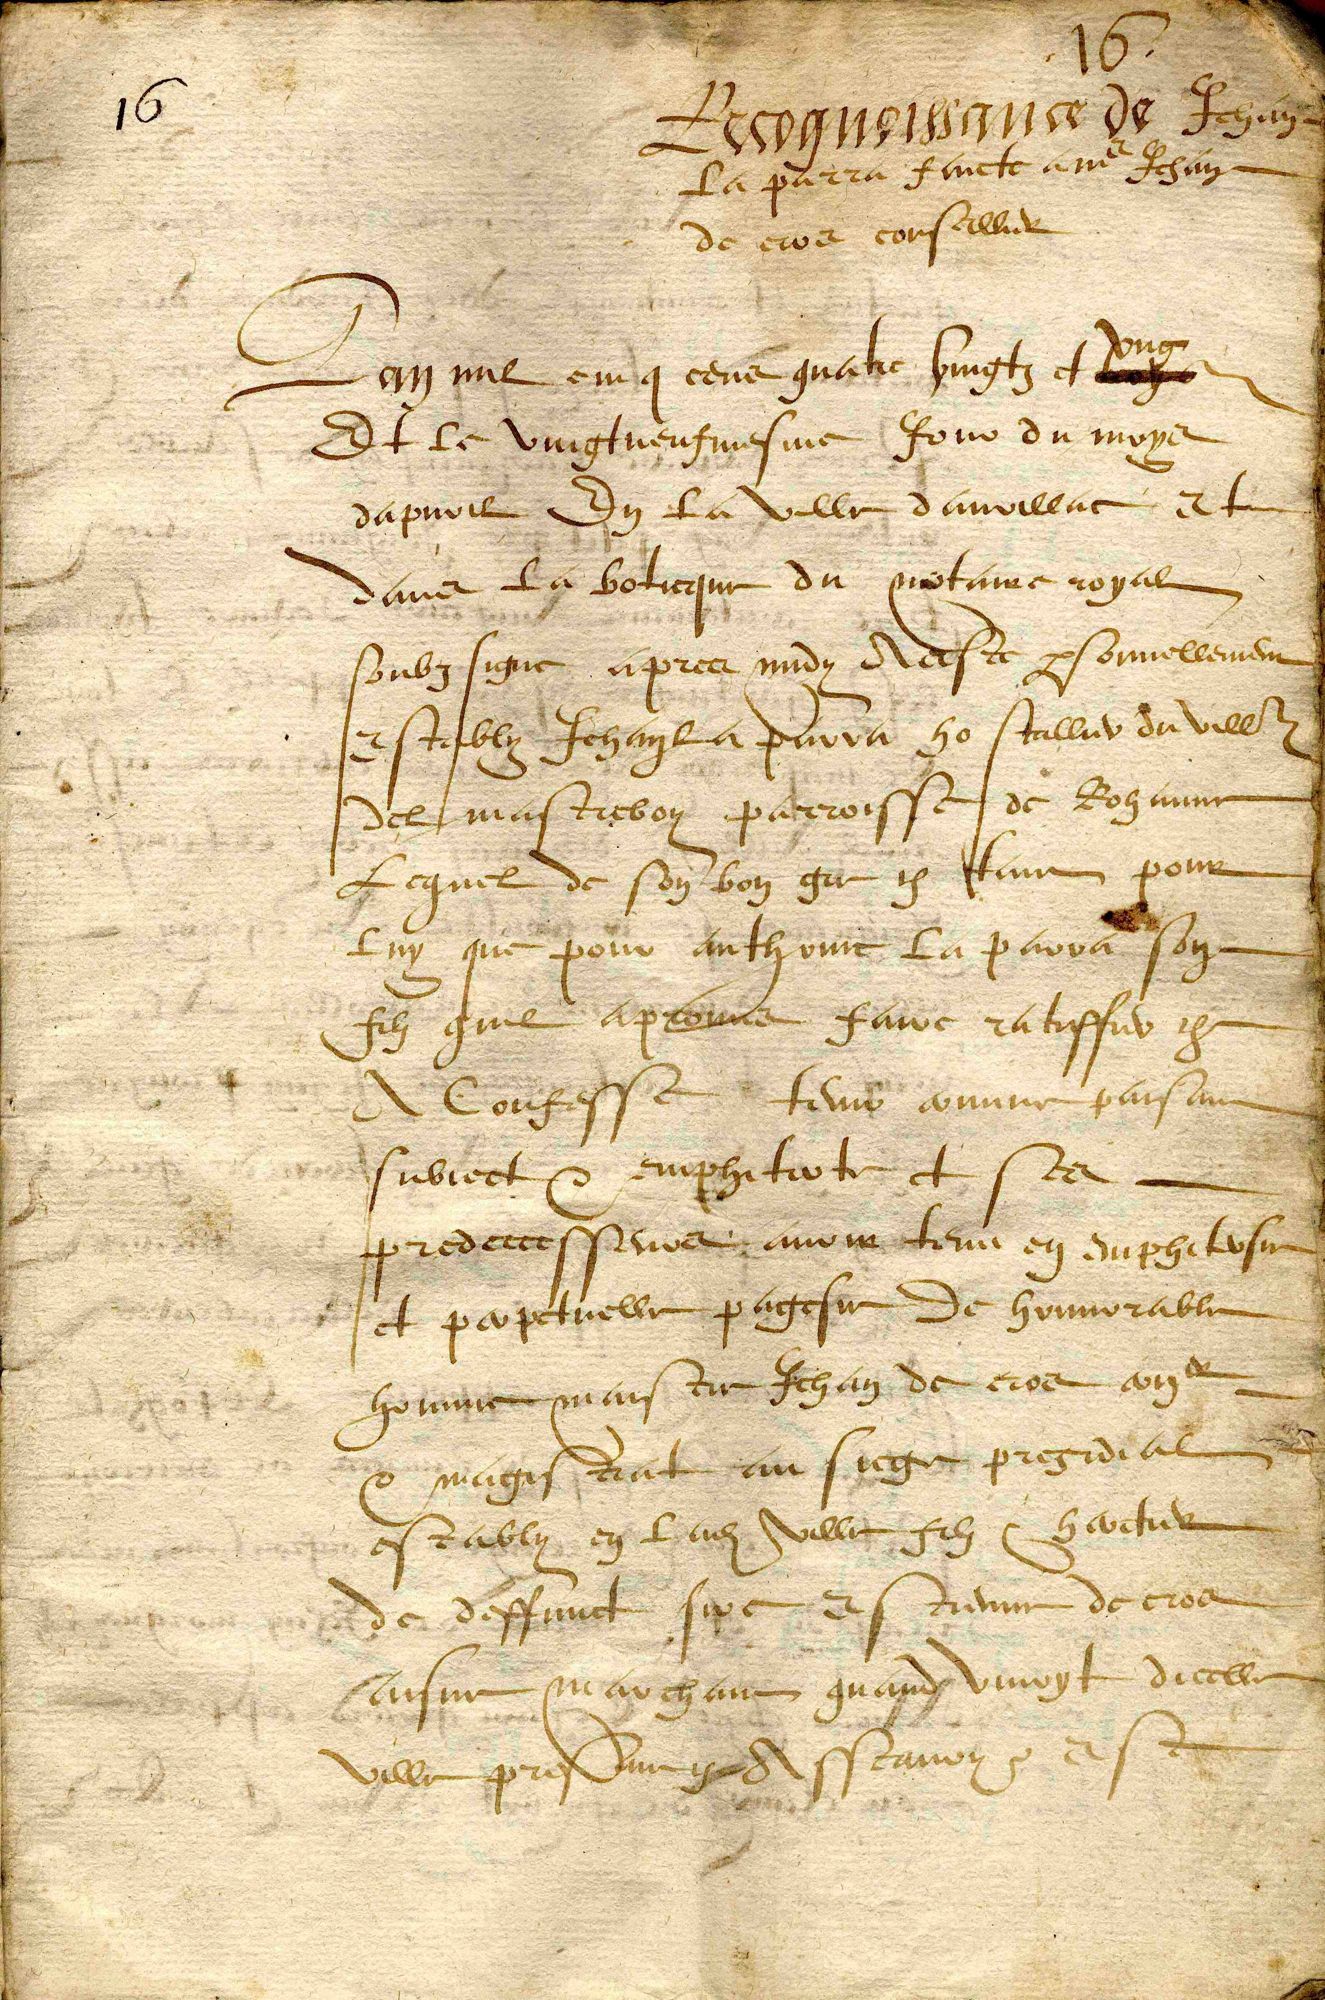 16
.16.
Recognoissance de Jehan
La parra faicte a me Jehan
de cros conseillier
Lan mil cinq cens quatre vingtz et ung
Et le vingtneufiesme jour du moys
dapvril En la ville daurillac et
dans la boticque du notaire royal
soubz signe apres midy A este personnellement
estably Jehan La parra hostellier du villaige
del mastrebon parroisse de Rohanne
Lequel de son bon gre tant pour
luy que pour anthoine La parra son
filz quil a promis faire ratiffier
A Confesse tenir comme paisant
subject & emphiteote et ses
predecesseurs avoir tenu en emphiteosie
et perpetuelle pagesie De honnorable
homme maistre Jehan de cros coner
& magistrat au siege presidial
estably en lad ville filz & heritier
de deffunct sire Estienne de cros
marchant quand vivoyt dicelle
ville present Asscavoir est